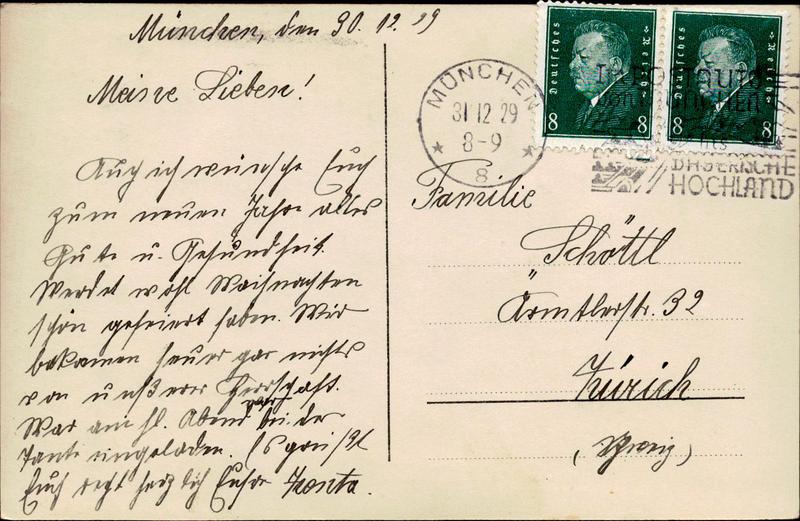 München, den 30.12.29
Meine Lieben!
Auch ich wünsche Euch
zum neuen Jahre alles
Gute u. Gesundheit.
Werdet wohl Weihnachten
schön gefeiert haben. Wir
bekamen heuer gar nichts
von unserer Herrschaft.
War am hl. Abend bei der
Tante eingeladen. Es grüßt
Euch recht herzlich Eure
MÜNCHEN
31 12 29
8-9
8
Deutsches Reich
8
Deutsches Reich
8
INS
BAYERISCHE
HOCHLAND
Familie
Schöttl
Ämtlerstr. 32
Zürich
(Schweiz)